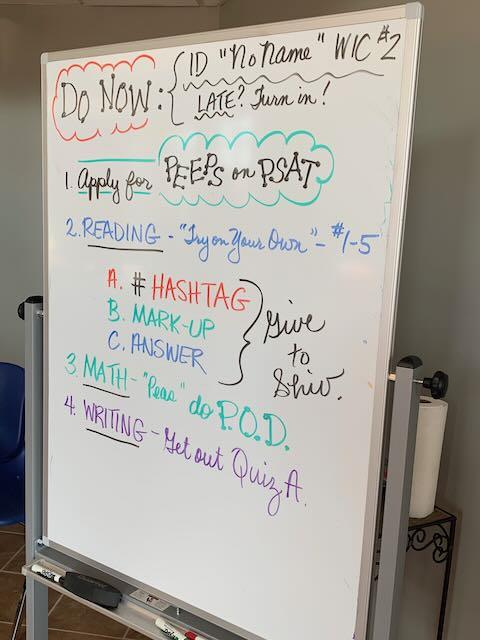 DO NOW: ID "No Name" WIC #2
LATE? Turn in!
1. Apply for PEEPS on PSAT
2. READING - "Try on Your Own" - #1-5
A. # HASHTAG
B. MARK-UP
C. ANSWER
Give
to
Shiv.
3. MATH - "Peas" do P.O.D.
4. WRITING - Get out Quiz A.